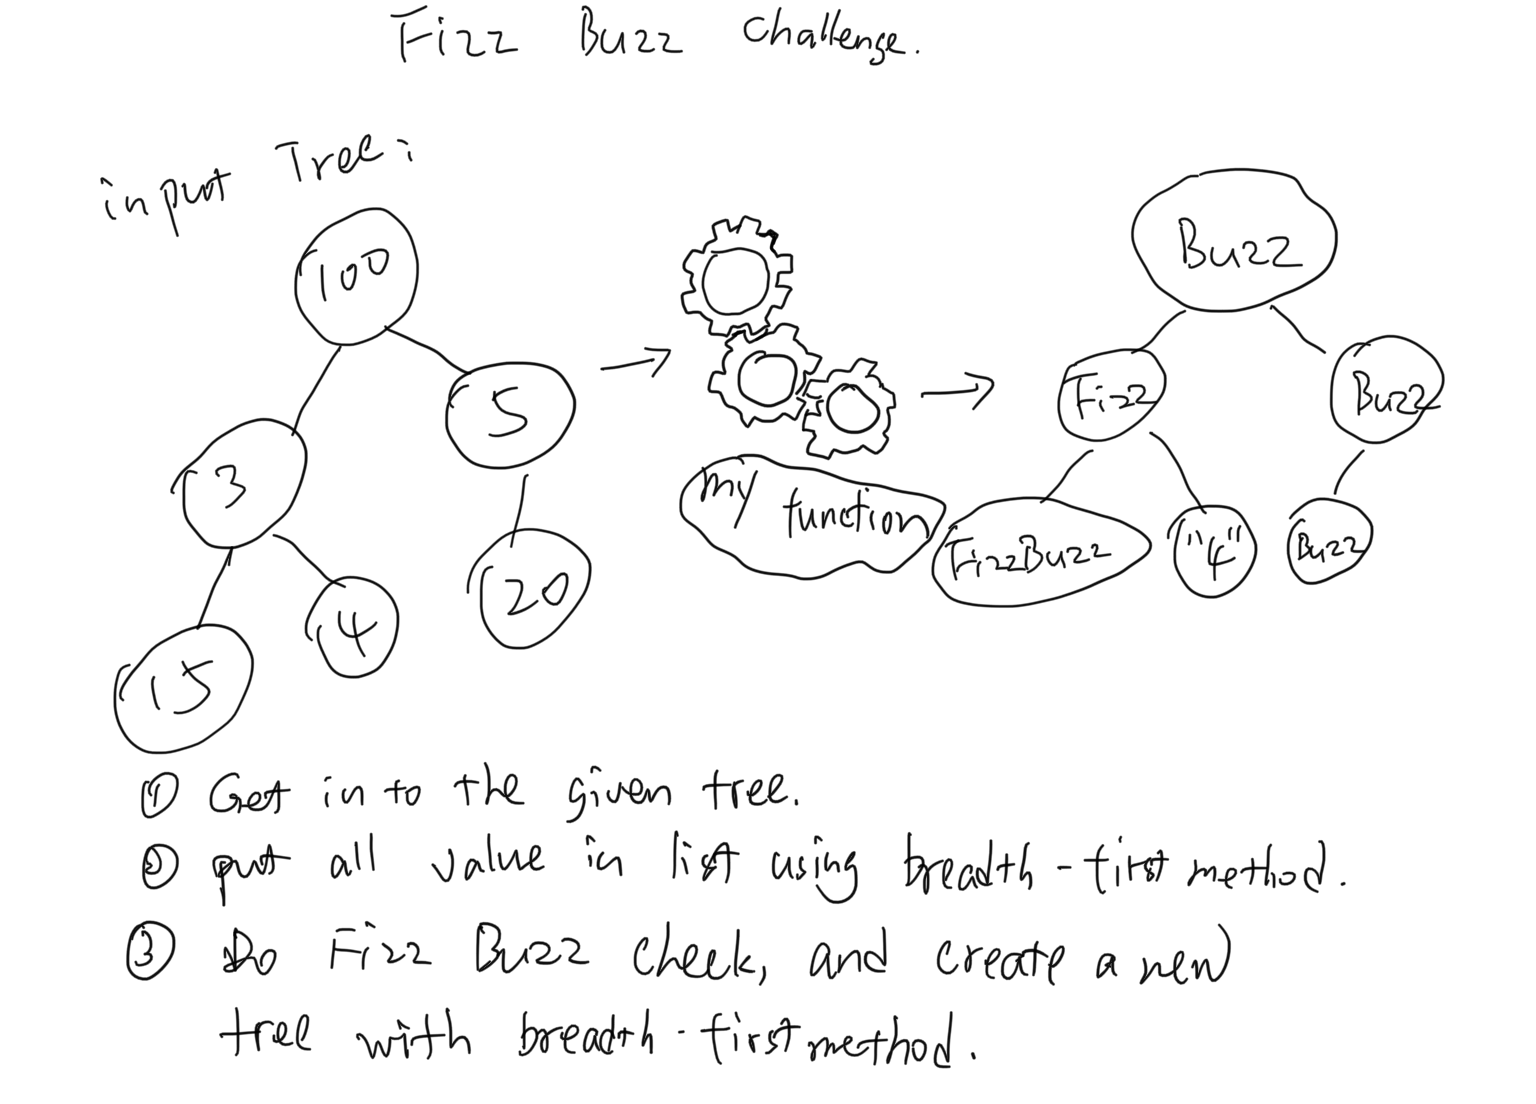 Fizz Buzz Challenge.
input Tree:
100
3
5
15
4
20
my function
Buzz
Fizz
Buzz
FizzBuzz
"4"
Buzz
① Get in to the given tree.
② put all value in list using breadth-first method.
③ Do Fizz Buzz check, and create a new
tree with breadth-first method.